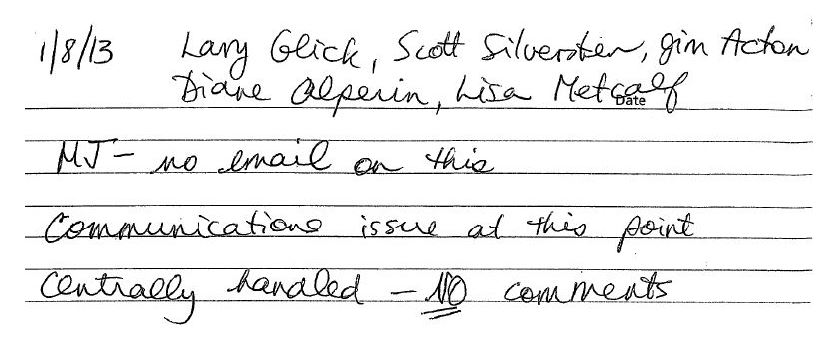 1/8/13 Larry Glick, Scott Silverstein, Jim Acton
Diane Alperin, Lisa Metcalf
Date
MJ - no email on this
Communications issue at this point
Centrally handled - NO comments